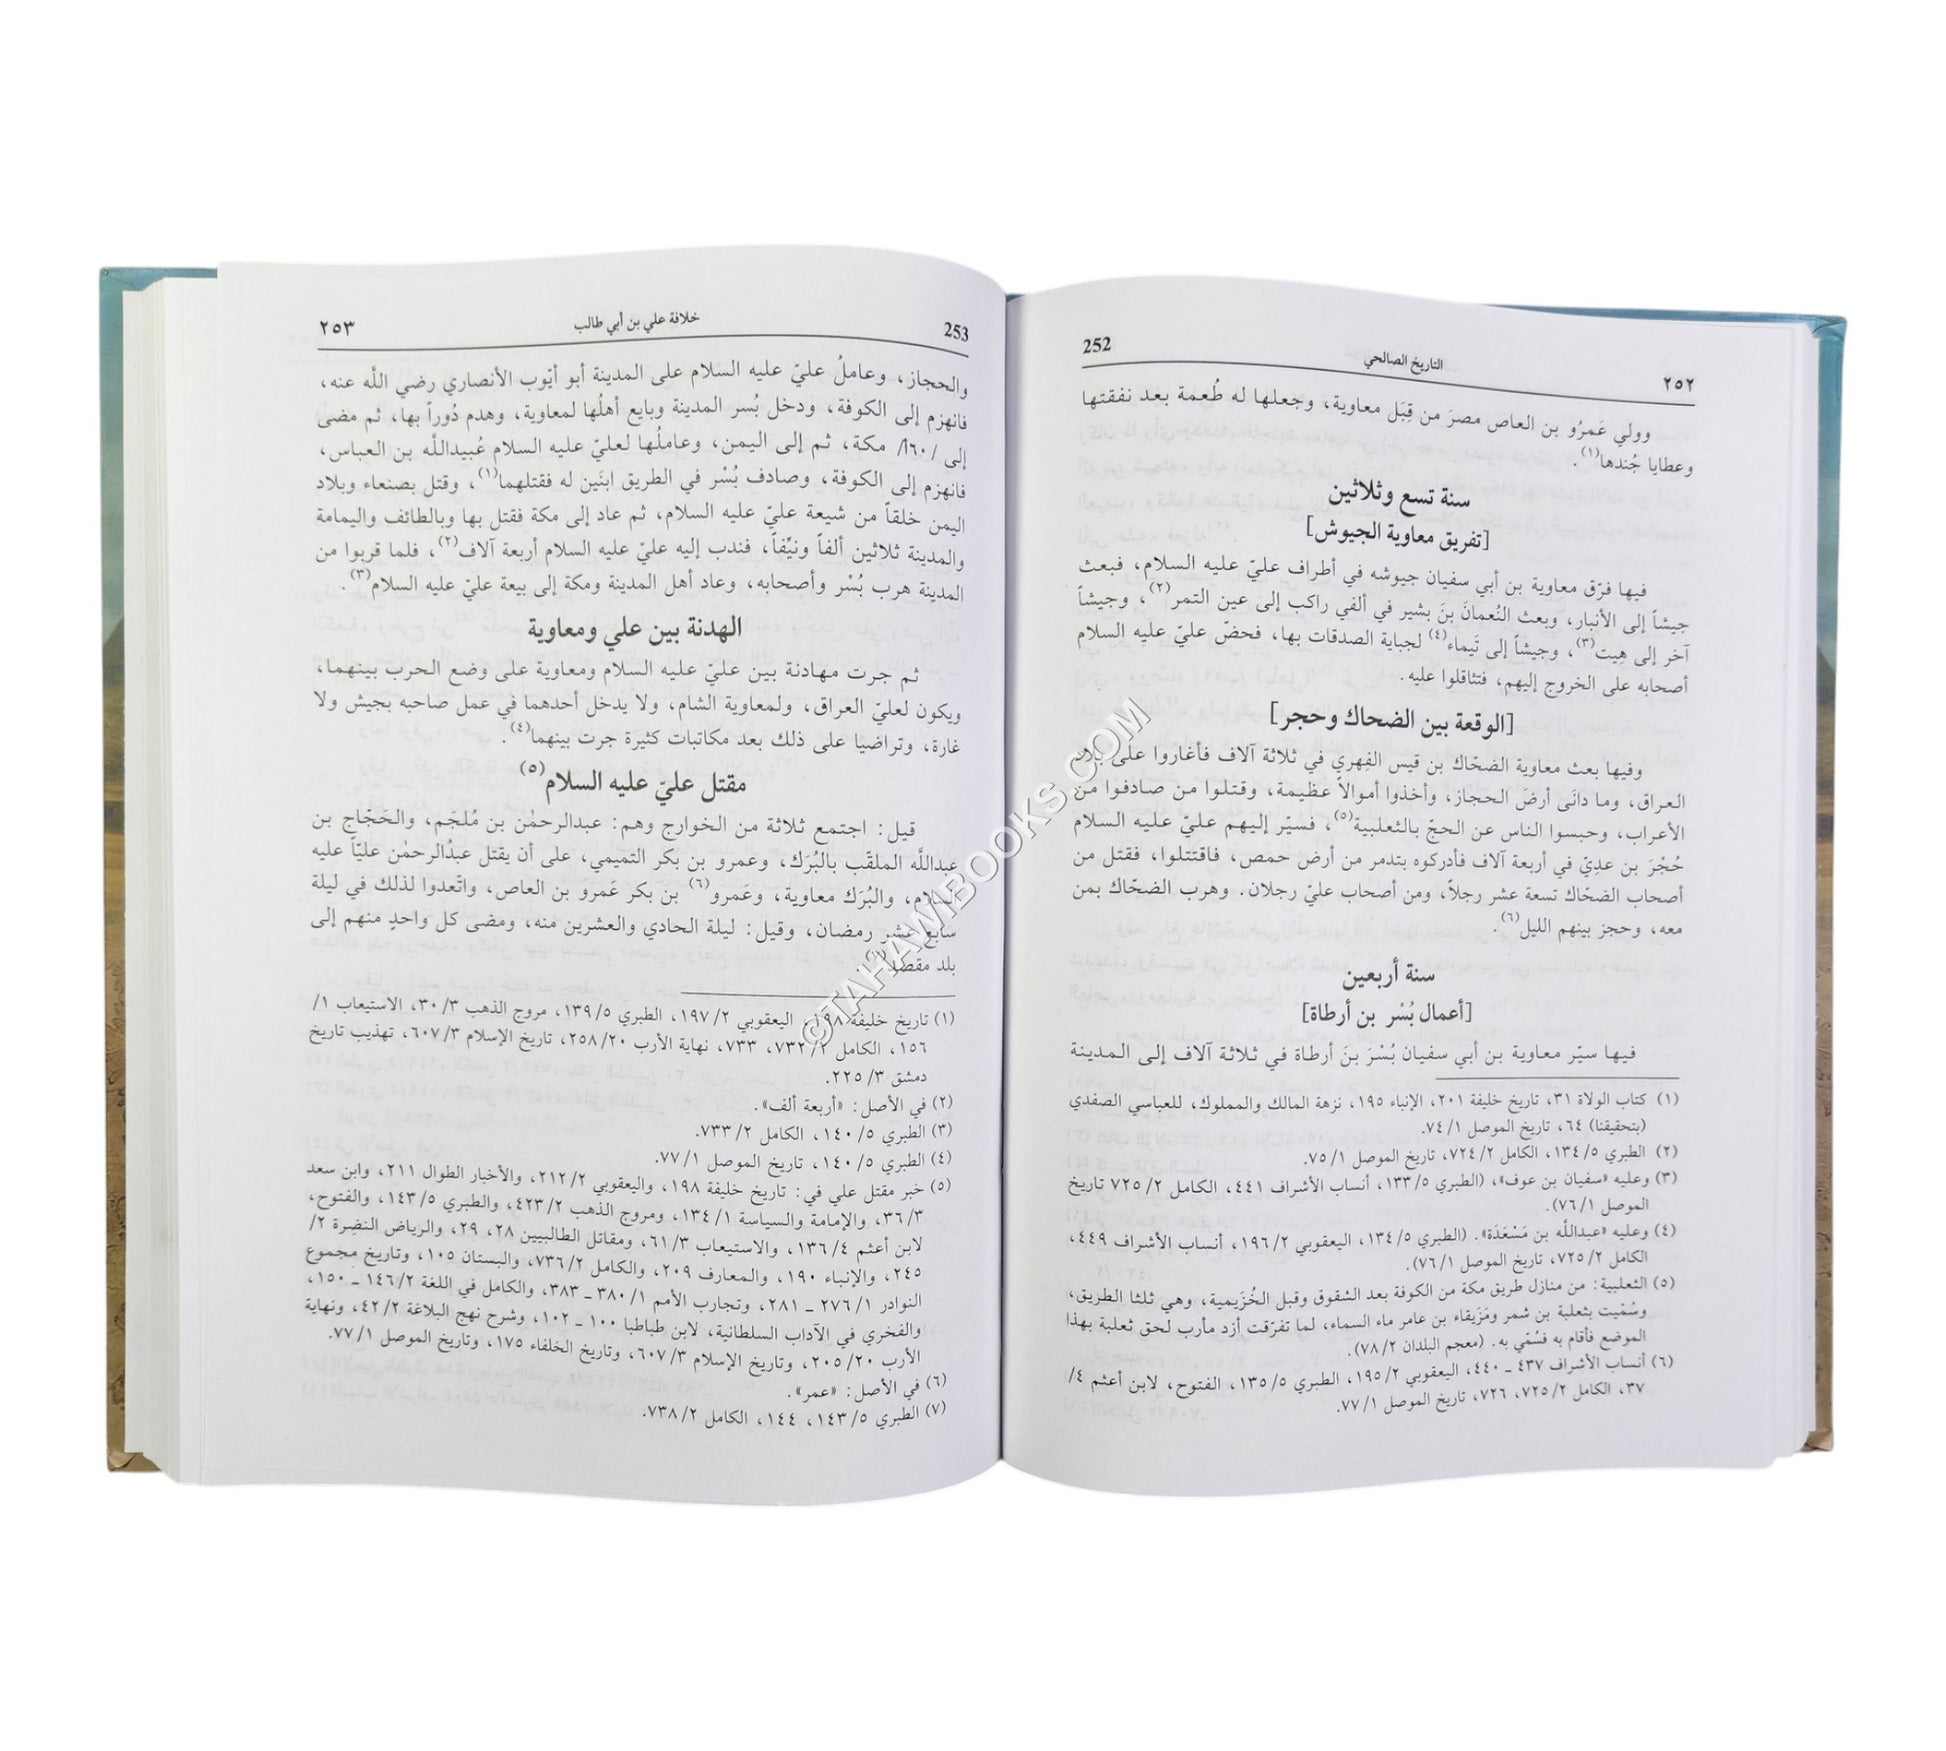 252
التاريخ الصالحي
٢٥٢
وولي عَمرُو بن العاص مصرَ من قِبَل معاوية، وجعلها له طُعمة بعد نفقتها
وعطايا جُندها(١).
سنة تسع وثلاثين
[تفريق معاوية الجيوش]
فيها فرّق معاوية بن أبي سفيان جيوشه في أطراف عليّ عليه السلام، فبعث
جيشاً إلى الأنبار، وبعث النُعمانَ بنَ بشير في ألفي راكب إلى عين التمر(٢)، وجيشاً
آخر إلى هِيت(٣)، وجيشاً إلى تَيماء(٤) لجباية الصدقات بها، فحضّ عليّ عليه السلام
أصحابه على الخروج إليهم، فتثاقلوا عليه.
[الوقعة بين الضحاك وحجر]
وفيها بعث معاوية الضحّاك بن قيس الفِهري في ثلاثة آلاف فأغاروا على بلاد
العراق، وما دانَى أرضَ الحجاز، وأخذوا أموالاً عظيمة، وقتلوا من صادفوا من
الأعراب، وحبسوا الناس عن الحجّ بالثعلبية(٥)، فسيّر إليهم عليّ عليه السلام
حُجْرَ بن عديّ في أربعة آلاف فأدركوه بتدمر من أرض حمص، فاقتتلوا، فقتل من
أصحاب الضحّاك تسعة عشر رجلاً، ومن أصحاب عليّ رجلان. وهرب الضحّاك بمن
معه، وحجز بينهم الليل(٦).
سنة أربعين
[أعمال بُسْر بن أرطاة]
فيها سيّر معاوية بن أبي سفيان بُسْرَ بنَ أرطاة في ثلاثة آلاف إلى المدينة
(١) كتاب الولاة ٣١، تاريخ خليفة ٢٠١، الإنباء ١٩٥، نزهة المالك والمملوك، للعباسي الصفدي
(بتحقيقنا) ٦٤، تاريخ الموصل ١/ ٧٤.
(٢) الطبري ٥/ ١٣٤، الكامل ٢/ ٧٢٤، تاريخ الموصل ١/ ٧٥.
(٣) وعليه «سفيان بن عوف»، (الطبري ٥/ ١٣٣، أنساب الأشراف ٤٤١، الكامل ٢/ ٧٢٥ تاريخ
الموصل ١/ ٧٦).
(٤) وعليه «عبدالله بن مَسْعَدَة». (الطبري ٥/ ١٣٤، اليعقوبي ٢/ ١٩٦، أنساب الأشراف ٤٤٩،
الكامل ٢/ ٧٢٥، تاريخ الموصل ١/ ٧٦).
(٥) الثعلبية: من منازل طريق مكة من الكوفة بعد الشقوق وقبل الخُزَيمية، وهي ثلثا الطريق،
وسُمّيت بثعلبة بن شمر ومَزَيقاء بن عامر ماء السماء، لما تفرّقت أزد مأرب لحق ثعلبة بهذا
الموضع فأقام به فسُمّي به. (معجم البلدان ٢/ ٧٨).
(٦) أنساب الأشراف ٤٣٧ ـ ٤٤٠، اليعقوبي ٢/ ١٩٥، الطبري ٥/ ١٣٥، الفتوح، لابن أعثم ٤/
٣٧، الكامل ٢/ ٧٢٥، ٧٢٦، تاريخ الموصل ١/ ٧٧.
253
خلافة علي بن أبي طالب
٢٥٣
والحجاز، وعاملُ عليّ عليه السلام على المدينة أبو أيّوب الأنصاري رضي الله عنه،
فانهزم إلى الكوفة، ودخل بُسر المدينة وبايع أهلُها لمعاوية، وهدم دُوراً بها، ثم مضى
إلى /١٦٠أ/ مكة، ثم إلى اليمن، وعاملُها لعليّ عليه السلام عُبيدالله بن العباس،
فانهزم إلى الكوفة، وصادف بُسْر في الطريق ابنَين له فقتلهما(١)، وقتل بصنعاء وبلاد
اليمن خلقاً من شيعة عليّ عليه السلام، ثم عاد إلى مكة فقتل بها وبالطائف واليمامة
والمدينة ثلاثين ألفاً ونيِّفاً، فندب إليه عليّ عليه السلام أربعة آلاف(٢)، فلما قربوا من
المدينة هرب بُسْر وأصحابه، وعاد أهل المدينة ومكة إلى بيعة عليّ عليه السلام(٣).
الهدنة بين علي ومعاوية
ثم جرت مهادنة بين عليّ عليه السلام ومعاوية على وضع الحرب بينهما،
ويكون لعليّ العراق، ولمعاوية الشام، ولا يدخل أحدهما في عمل صاحبه بجيش ولا
غارة، وتراضيا على ذلك بعد مكاتبات كثيرة جرت بينهما(٤).
مقتل عليّ عليه السلام(٥)
قيل: اجتمع ثلاثة من الخوارج وهم: عبدالرحمٰن بن مُلجَم، والحَجّاج بن
عبدالله الملقّب بالبُرَك، وعمرو بن بكر التميمي، على أن يقتل عبدُالرحمٰن عليّاً عليه
السلام، والبُرَك معاوية، وعَمرو(٦) بن بكر عَمرو بن العاص، واتّعدوا لذلك في ليلة
سابع عشر رمضان، وقيل: ليلة الحادي والعشرين منه، ومضى كل واحدٍ منهم إلى
بلد مقصده(٧).
(١) تاريخ خليفة ١٩٨، اليعقوبي ٢/ ١٩٧، الطبري ٥/ ١٣٩، مروج الذهب ٣/ ٣٠، الاستيعاب ١/
١٥٦، الكامل ٢/ ٧٣٢، ٧٣٣، نهاية الأرب ٢٠/ ٢٥٨، تاريخ الإسلام ٣/ ٦٠٧، تهذيب تاريخ
دمشق ٣/ ٢٢٥.
(٢) في الأصل: «أربعة ألف».
(٣) الطبري ٥/ ١٤٠، الكامل ٢/ ٧٣٣.
(٤) الطبري ٥/ ١٤٠، تاريخ الموصل ١/ ٧٧.
(٥) خبر مقتل علي في: تاريخ خليفة ١٩٨، واليعقوبي ٢/ ٢١٢، والأخبار الطوال ٢١١، وابن سعد
٣/ ٣٦، والإمامة والسياسة ١/ ١٣٤، ومروج الذهب ٢/ ٤٢٣، والطبري ٥/ ١٤٣، والفتوح،
لابن أعثم ٤/ ١٣٦، والاستيعاب ٣/ ٦١، ومقاتل الطالبيين ٢٨، ٢٩، والرياض النضِرة ٢/
٢٤٥، والإنباء ١٩٠، والمعارف ٢٠٩، والكامل ٢/ ٧٣٦، والبستان ١٠٥، وتاريخ مجموع
النوادر ١/ ٢٧٦ ـ ٢٨١، وتجارب الأمم ١/ ٣٨٠ ـ ٣٨٣، والكامل في اللغة ٢/ ١٤٦ ـ ١٥٠،
والفخري في الآداب السلطانية، لابن طباطبا ١٠٠ ـ ١٠٢، وشرح نهج البلاغة ٢/ ٤٢، ونهاية
الأرب ٢٠/ ٢٠٥، وتاريخ الإسلام ٣/ ٦٠٧، وتاريخ الخلفاء ١٧٥، وتاريخ الموصل ١/ ٧٧.
(٦) في الأصل: «عمر».
(٧) الطبري ٥/ ١٤٣، ١٤٤، الكامل ٢/ ٧٣٨.
©TAHAWIBOOKS.COM